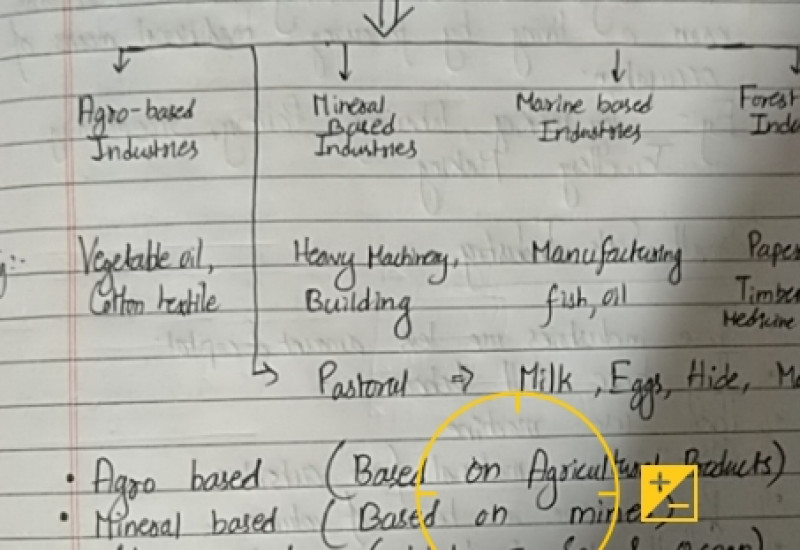 Agro-based Mineral Marine based Forest
Industries Based Industries
Industries
Vegetable oil, Heavy Machinery, Manufacturing
Cotton textile Building fish, oil
Medicine
Pastoral ⇒ Milk, Eggs, Hide,
• Agro based (Based on Agricultural Products)
• Mineral based (Based on